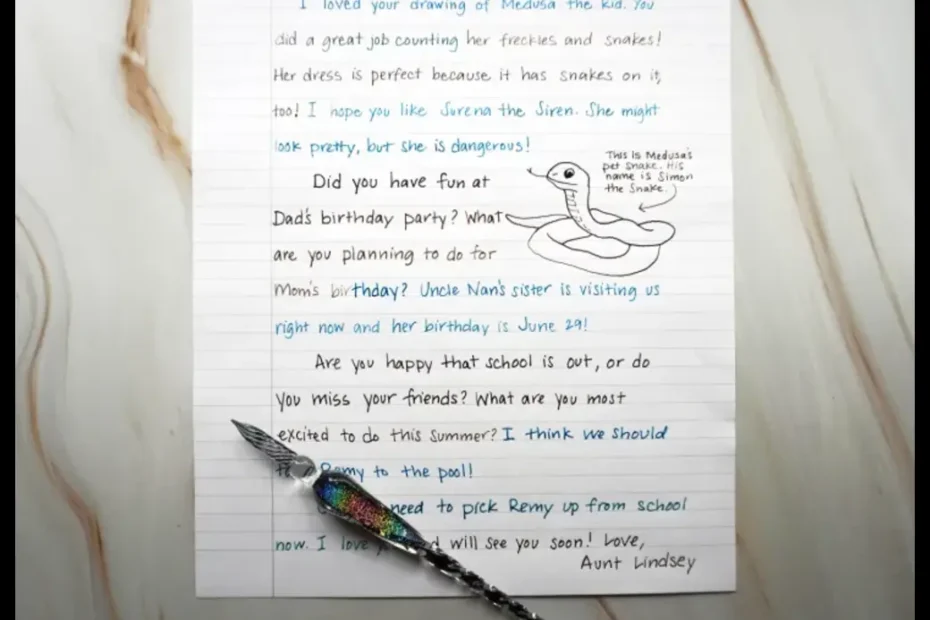 I loved your drawing of Medusa the kid. You
did a great job counting her freckles and snakes!
Her dress is perfect because it has snakes on it,
too! I hope you like Surena the Siren. She might
look pretty, but she is dangerous!
This is Medusa's
pet snake. His
name is Simon
the Snake.
Did you have fun at
Dad's birthday party? What
are you planning to do for
Mom's birthday? Uncle Nan's sister is visiting us
right now and her birthday is June 29!
Are you happy that school is out, or do
you miss your friends? What are you most
excited to do this summer? I think we should
Remy to the pool!
need to pick Remy up from school
now. I love will see you soon! Love,
Aunt Lindsey